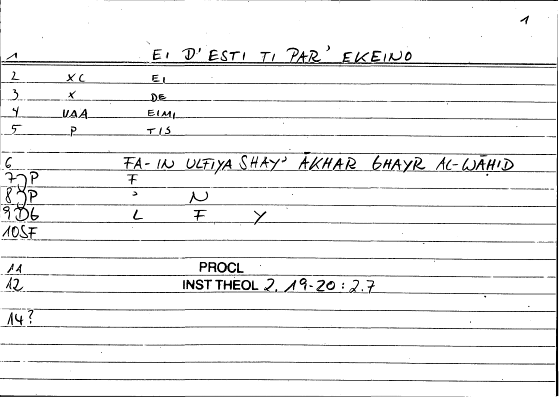 1
1 EI D'ESTI TI PAR' EKEINO
2 XC EI
3 X DE
4 VAA EIMI
5 P TIS
6 FA-IN ULFIYA SHAY' ĀKHAR GHAYR AL-WĀHID
7JP F
8JP ' N
9DG L F Y
10SF
11 PROCL
12 INST THEOL 2. 19-20 : 2.7
14?